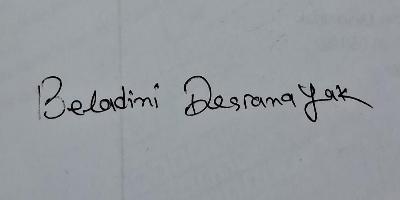 Beladini Desranayak